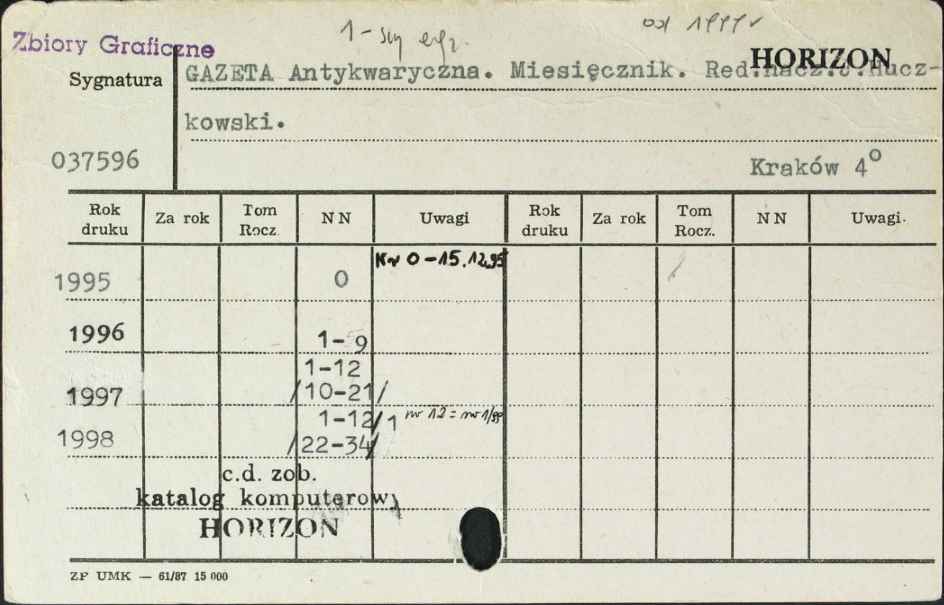 1-szy egz. od 1999 r
Zbiory Graficzne
HORIZON
Sygnatura GAZETA Antykwaryczna. Miesięcznik. Red.nacz.J.Hucz-
kowski.
037596 Kraków 4º
Rok druku Za rok Tom Rocz. NN Uwagi Rok druku Za rok Tom Rocz. NN Uwagi.
Nr 0-15.12.95
1995 0
1996 1-9
1-12
1997 /10-21/
1-12/1 nr 12 = nr 1/99
1998 /22-34/
c.d. zob.
katalog komputerowy
HORIZON
ZF UMK — 61/87 15 000